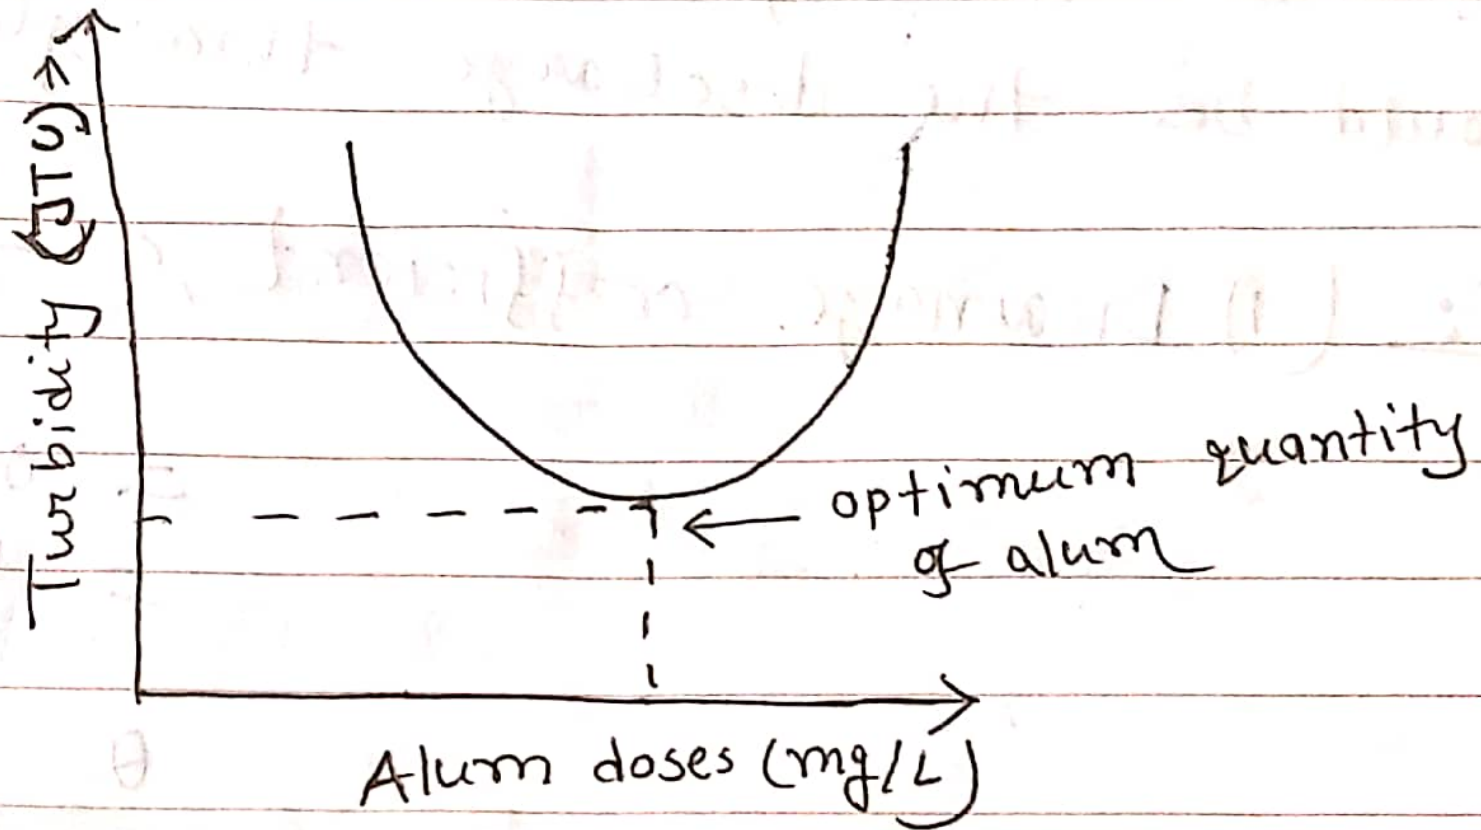 Turbidity (JTU) →
optimum quantity
of alum
Alum doses (mg/L)